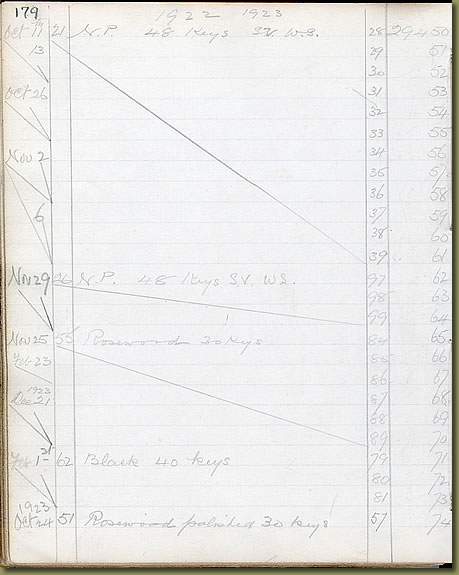 179
1922 1923
Oct 17 21 N.P. 48 Keys S.V. W.S. 28 29450
13 29 51
30 52
Oct 26 31 53
32 54
33 55
Nov 2 34 56
35 57
36 58
6 37 59
38 60
39 61
Nov 29 26 N.P. 48 Keys S.V. W.S. 97 62
98 63
99 64
Nov 25 55 Rosewood 30 Keys 84 65
Feb 23 85 66
86 67
1923
Dec 21 87 68
88 69
89 70
31
Feb 1 62 Black 40 Keys 79 71
80 72
1923 81 73
Oct 24 51 Rosewood polished 30 Keys 57 74